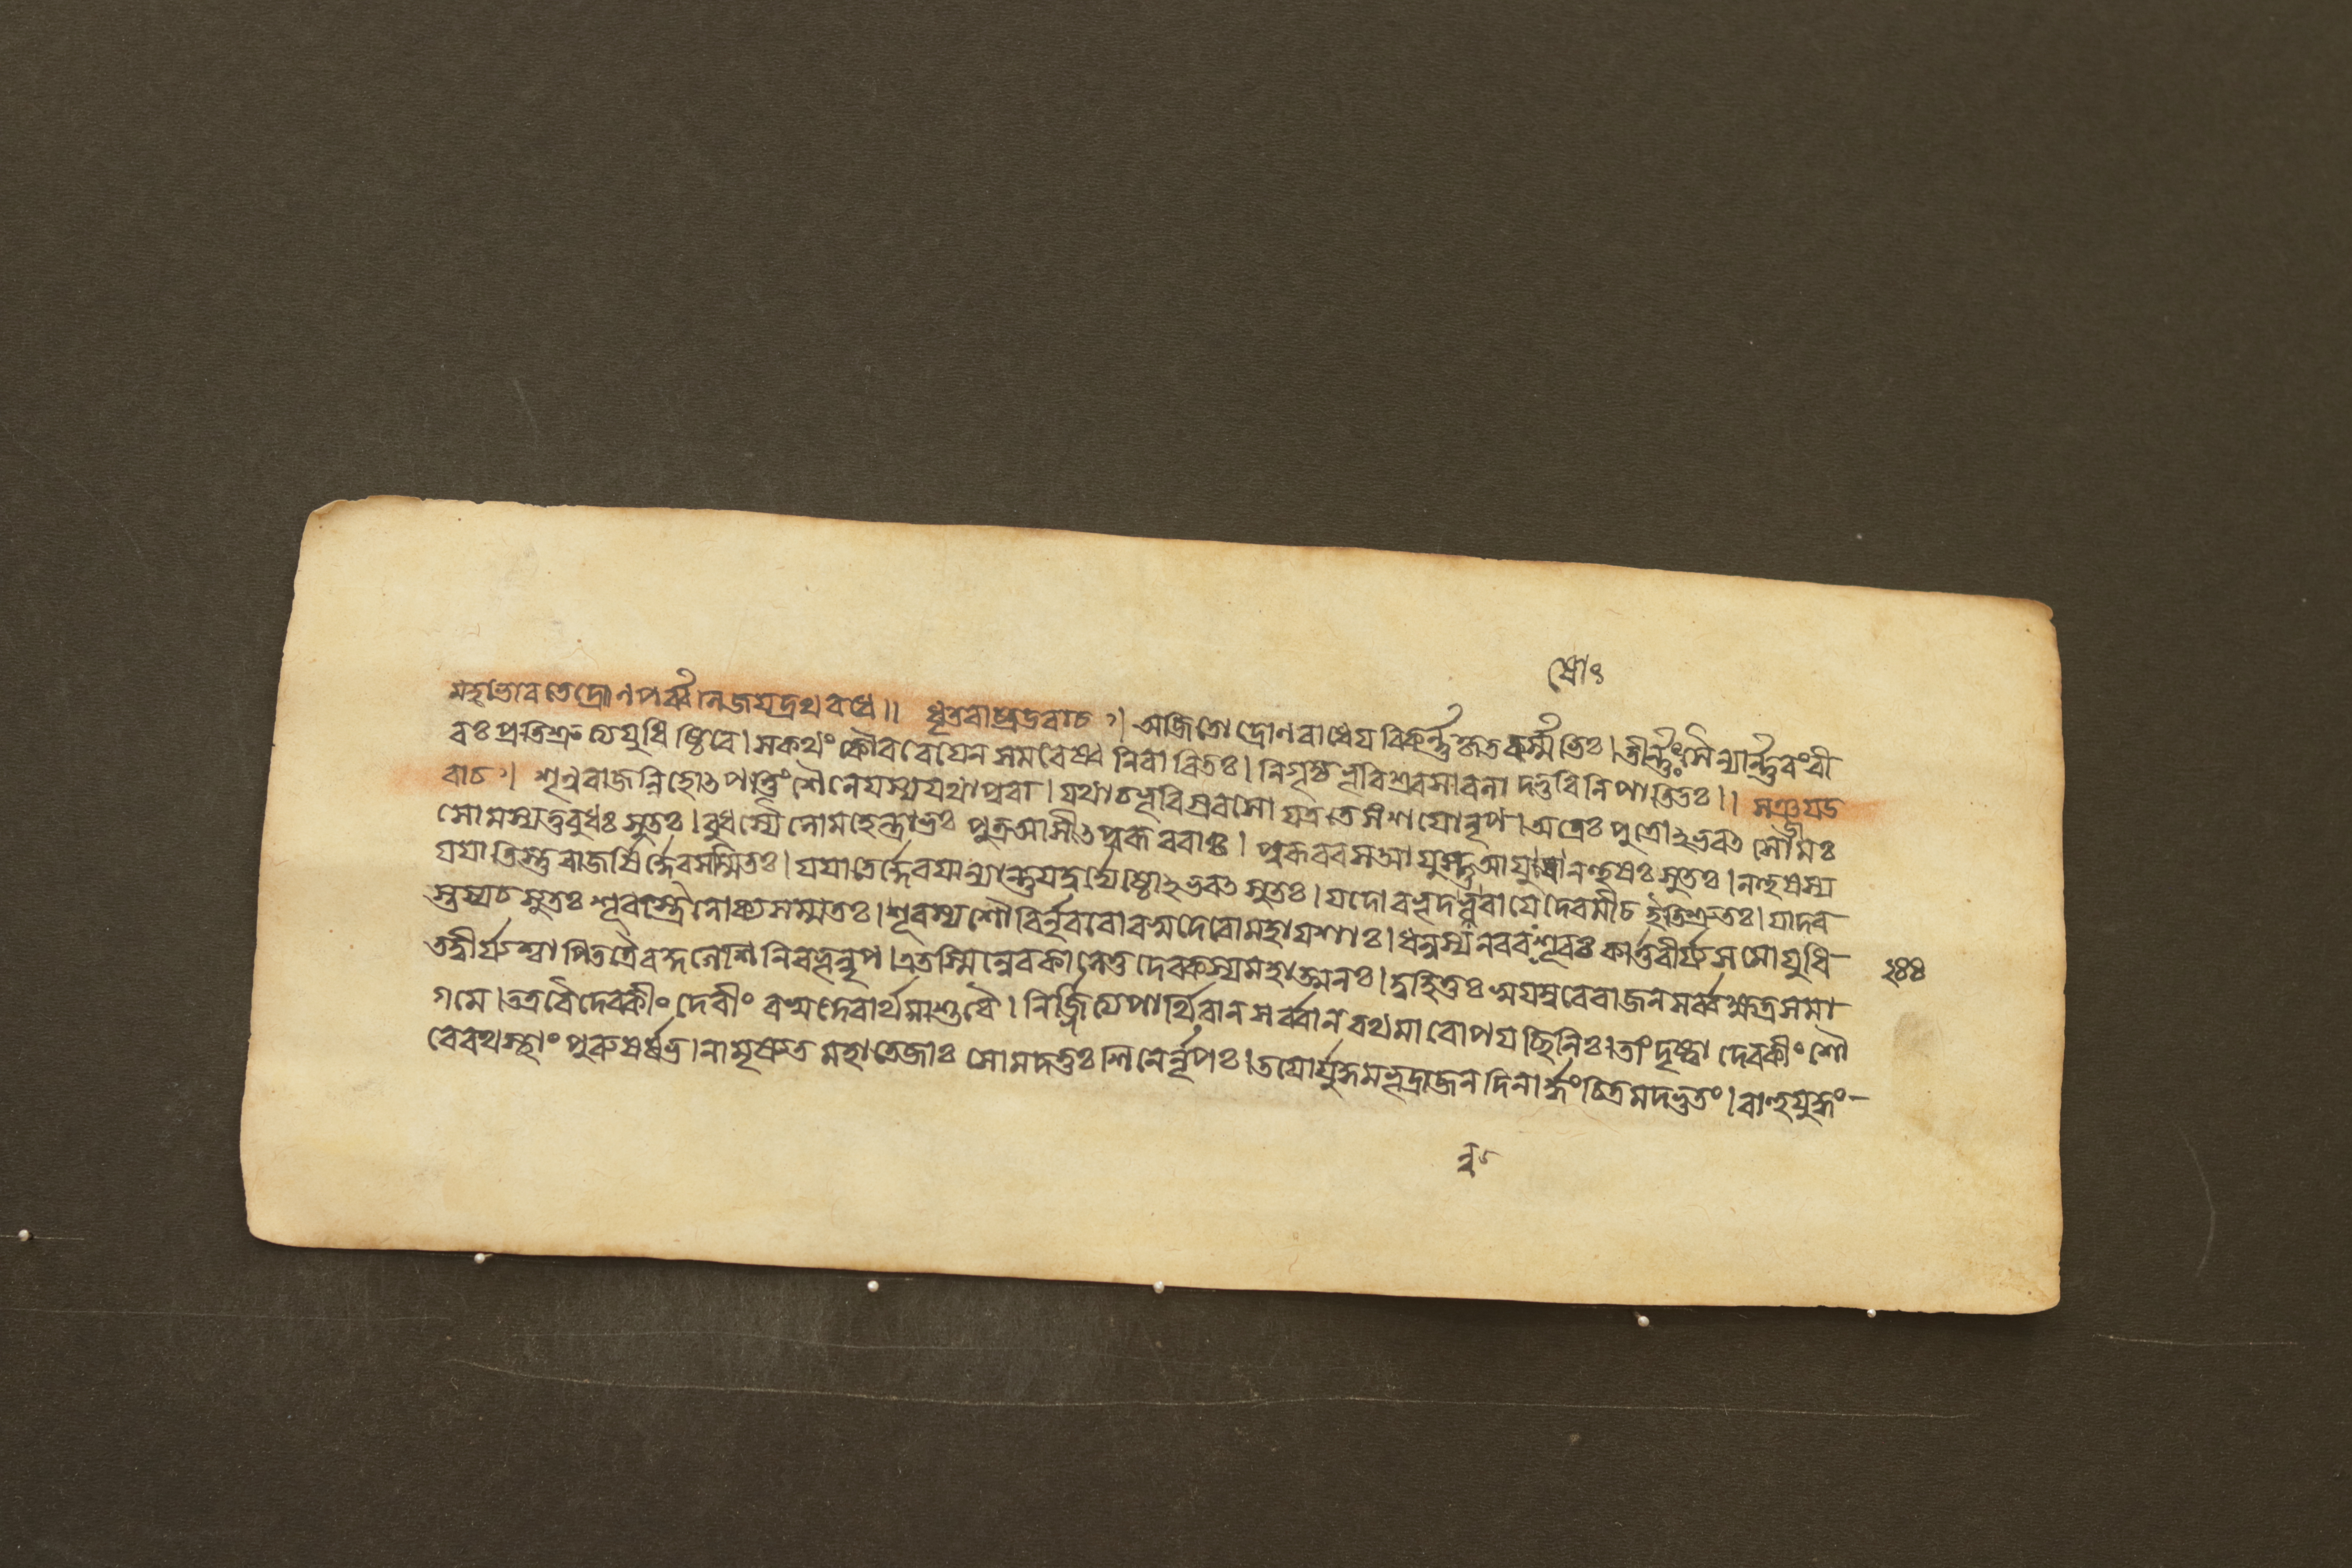 দ্রোং
মহাভাৰতেদ্রোনপর্ব্বনিজয়দ্রথবধে।। ধৃতৰাষ্ট্রউৱাচ।অজিতোদ্রোণৰাধেয়বিকর্ন্নকৃতবর্ম্মভিঃ।তীর্ন্নঃসৈন্যার্ন্নৱংৱী
ৰঃপ্রতিশ্রুত্যযুধিষ্ঠিৰে।সকথংকৌৰৱেয়েনসমৰেষ্বনিৱাৰিতঃ।নিগৃহ্যভূৰিশ্রৱসাৱলাদ্ভুৱিনিপাতিতঃ।। সঞ্জয়উ
ৱাচ।শৃনুৰাজন্নিহোৎপত্তিংশৈনেয়স্যযথাপুৰা।যথাচভূৰিশ্রৱসোযত্রতেসংশয়োনৃপ।অত্রেঃপুত্রোঽভৱৎসোমঃ
সোমস্যতুবুধঃসুতঃ।বুধস্যৈকোমহেন্দ্রাভঃপুত্রআসীৎপুৰূৰৱাঃ।পুৰূৰৱসআয়ুস্তুআয়ুষোনহুষঃসুতঃ।নহুষস্য
যযাতিস্তুৰাজর্ষির্দ্দেৱসম্মিতঃ।যযাতের্দ্দেৱযান্যান্তুযদুর্জ্যেষ্ঠোঽভৱৎসুতঃ।যদোৰভূদন্বৱায়েদেৱমীঢইতিশ্রুতঃ।যাদৱ
স্তস্যচসুতঃশূৰস্ত্রৈলোক্যসম্মতঃ।শূৰস্যশৌৰির্নৃৱৰোৱসুদেৱোমহাযশাঃ।ধনুস্যনৱৰঃশূৰঃকার্ত্তৱীর্য্যসমোযুধি
তদ্বীর্য্যশ্চাপিতত্রৈৱকুলেশিনিৰভূন্নৃপ।এতস্মিন্নেৱকালেতুদেৱকস্যমহাত্মনঃ।দুহিতুঃস্বয়ম্বৰেৰাজনসর্ব্বক্ষত্রসমা
গমে।তত্রৱৈদেৱকীংদেৱীংৱসুদেৱার্থমাশুৱৈ।নির্জ্জিত্যপার্থিৱানসর্ব্বানৰথমাৰোপয়চ্ছিনিঃ।তাংদৃষ্ট্বাদেৱকীংশৌ
ৰেৰথস্থাংপুৰুষর্ষভ।নামৃষ্যতমহাতেজাঃসোমদত্তঃশিনের্নৃপঃ।তয়োর্যুদ্ধমভূদ্রাজনদিনার্দ্ধংচিত্রমদ্ভুতং।বাহুযুদ্ধং
২৪৪